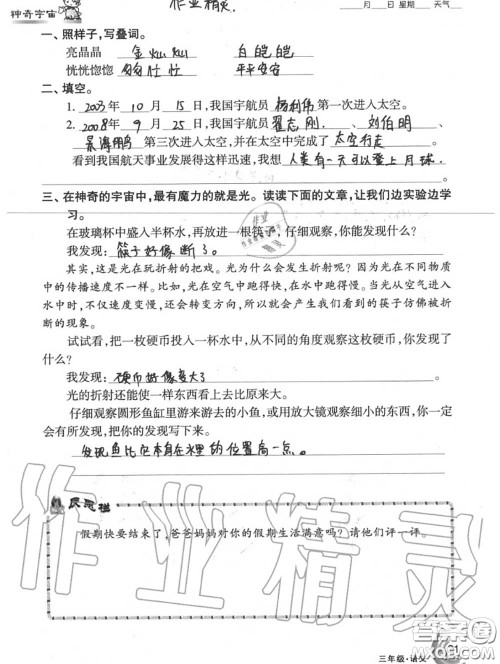 神奇宇宙 作业精灵. ___月___日 星期___ 天气___
一、照样子,写叠词。
亮晶晶 金灿灿 白皑皑
恍恍惚惚 匆匆忙忙 平平安安
二、填空。
1. 2003年 10月 15日,我国宇航员杨利伟第一次进入太空。
2. 2008年 9月 25日,我国宇航员翟志刚、刘伯明、
景海鹏第三次进入太空,并在太空中完成了太空行走。
看到我国航天事业发展得这样迅速,我想人类有一天可以登上月球.
三、在神奇的宇宙中,最有魔力的就是光。读读下面的文章,让我们边实验边学
习。
在玻璃杯中盛入半杯水,再放进一根筷子,仔细观察,你能发现什么?
我发现:筷子好像断了。
其实,这是光在玩折射的把戏。光为什么会发生折射呢?因为光在不同物质
中的传播速度不一样。比如,光在空气中跑得快,在水中跑得慢。当光从空气进入
水中时,不仅速度变慢,还会转变方向,所以就会产生我们看到的筷子仿佛被折
断的现象。
试试看,把一枚硬币投入一杯水中,从不同的角度观察这枚硬币,你发现了
什么?
我发现:硬币好像变大了
光的折射还能使一样东西看上去比原来大。
仔细观察圆形鱼缸里游来游去的小鱼,或用放大镜观察细小的东西,你一定
会有所发现,把你的发现写下来。
发现鱼比它本身在水里的位置高一点。
反思栏
假期快要结束了,爸爸妈妈对你的假期生活满意吗?请他们评一评。
作业精灵
三年级·语文 61